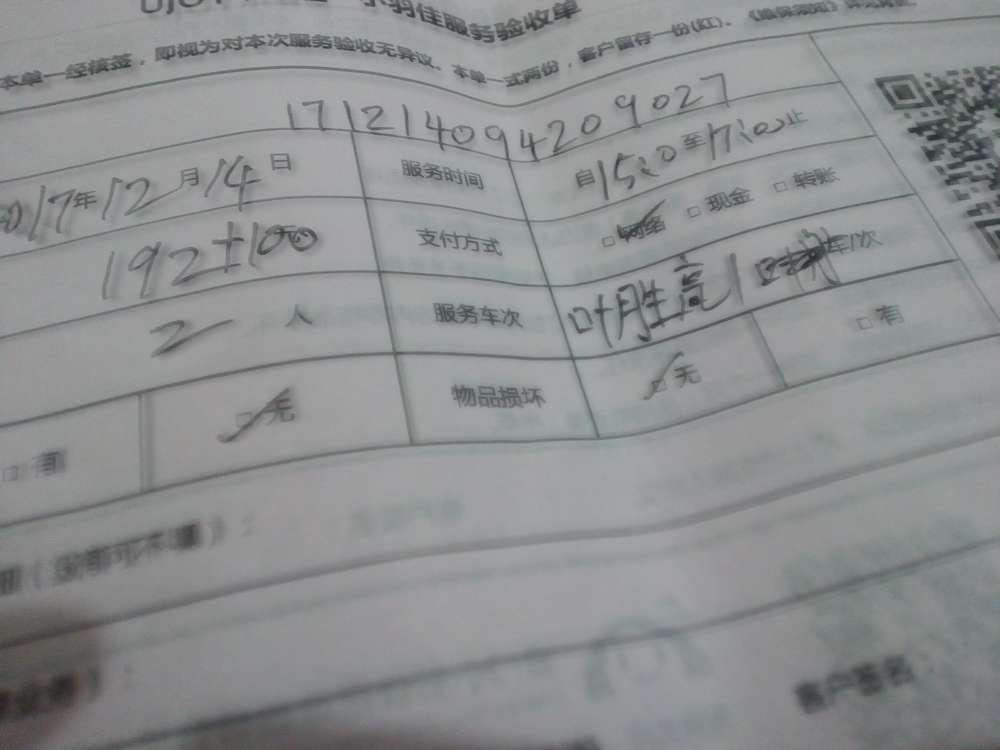 小羽佳服务验收单
本单一经核签，即视为对本次服务验收无异议。本单一式两份，客户留存一份(红)。
171214094209027
017年12月14日 服务时间 自15:0至17:00止
192+100 支付方式 □网络 □现金 □转账
2人 服务车次 叶胜高1 车/次
□有 □无 物品损坏 □无 □有
客户签名：